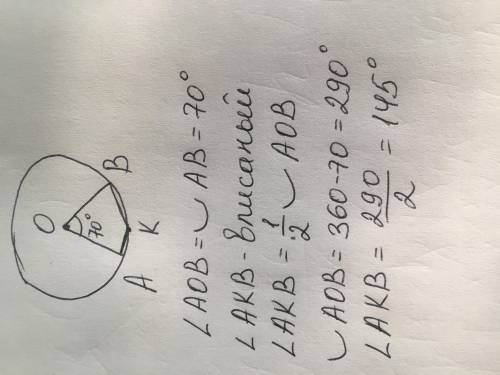 O
B
70°
K
A
∠AOB = ◡ AB = 70°
∠AKB - вписаный
∠AKB = 1/2 ◡ AOB
◡ AOB = 360-70 = 290°
∠AKB = 290/2 = 145°